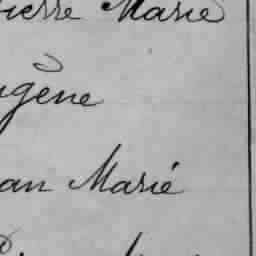 ierre Marie
ugène
an Marié